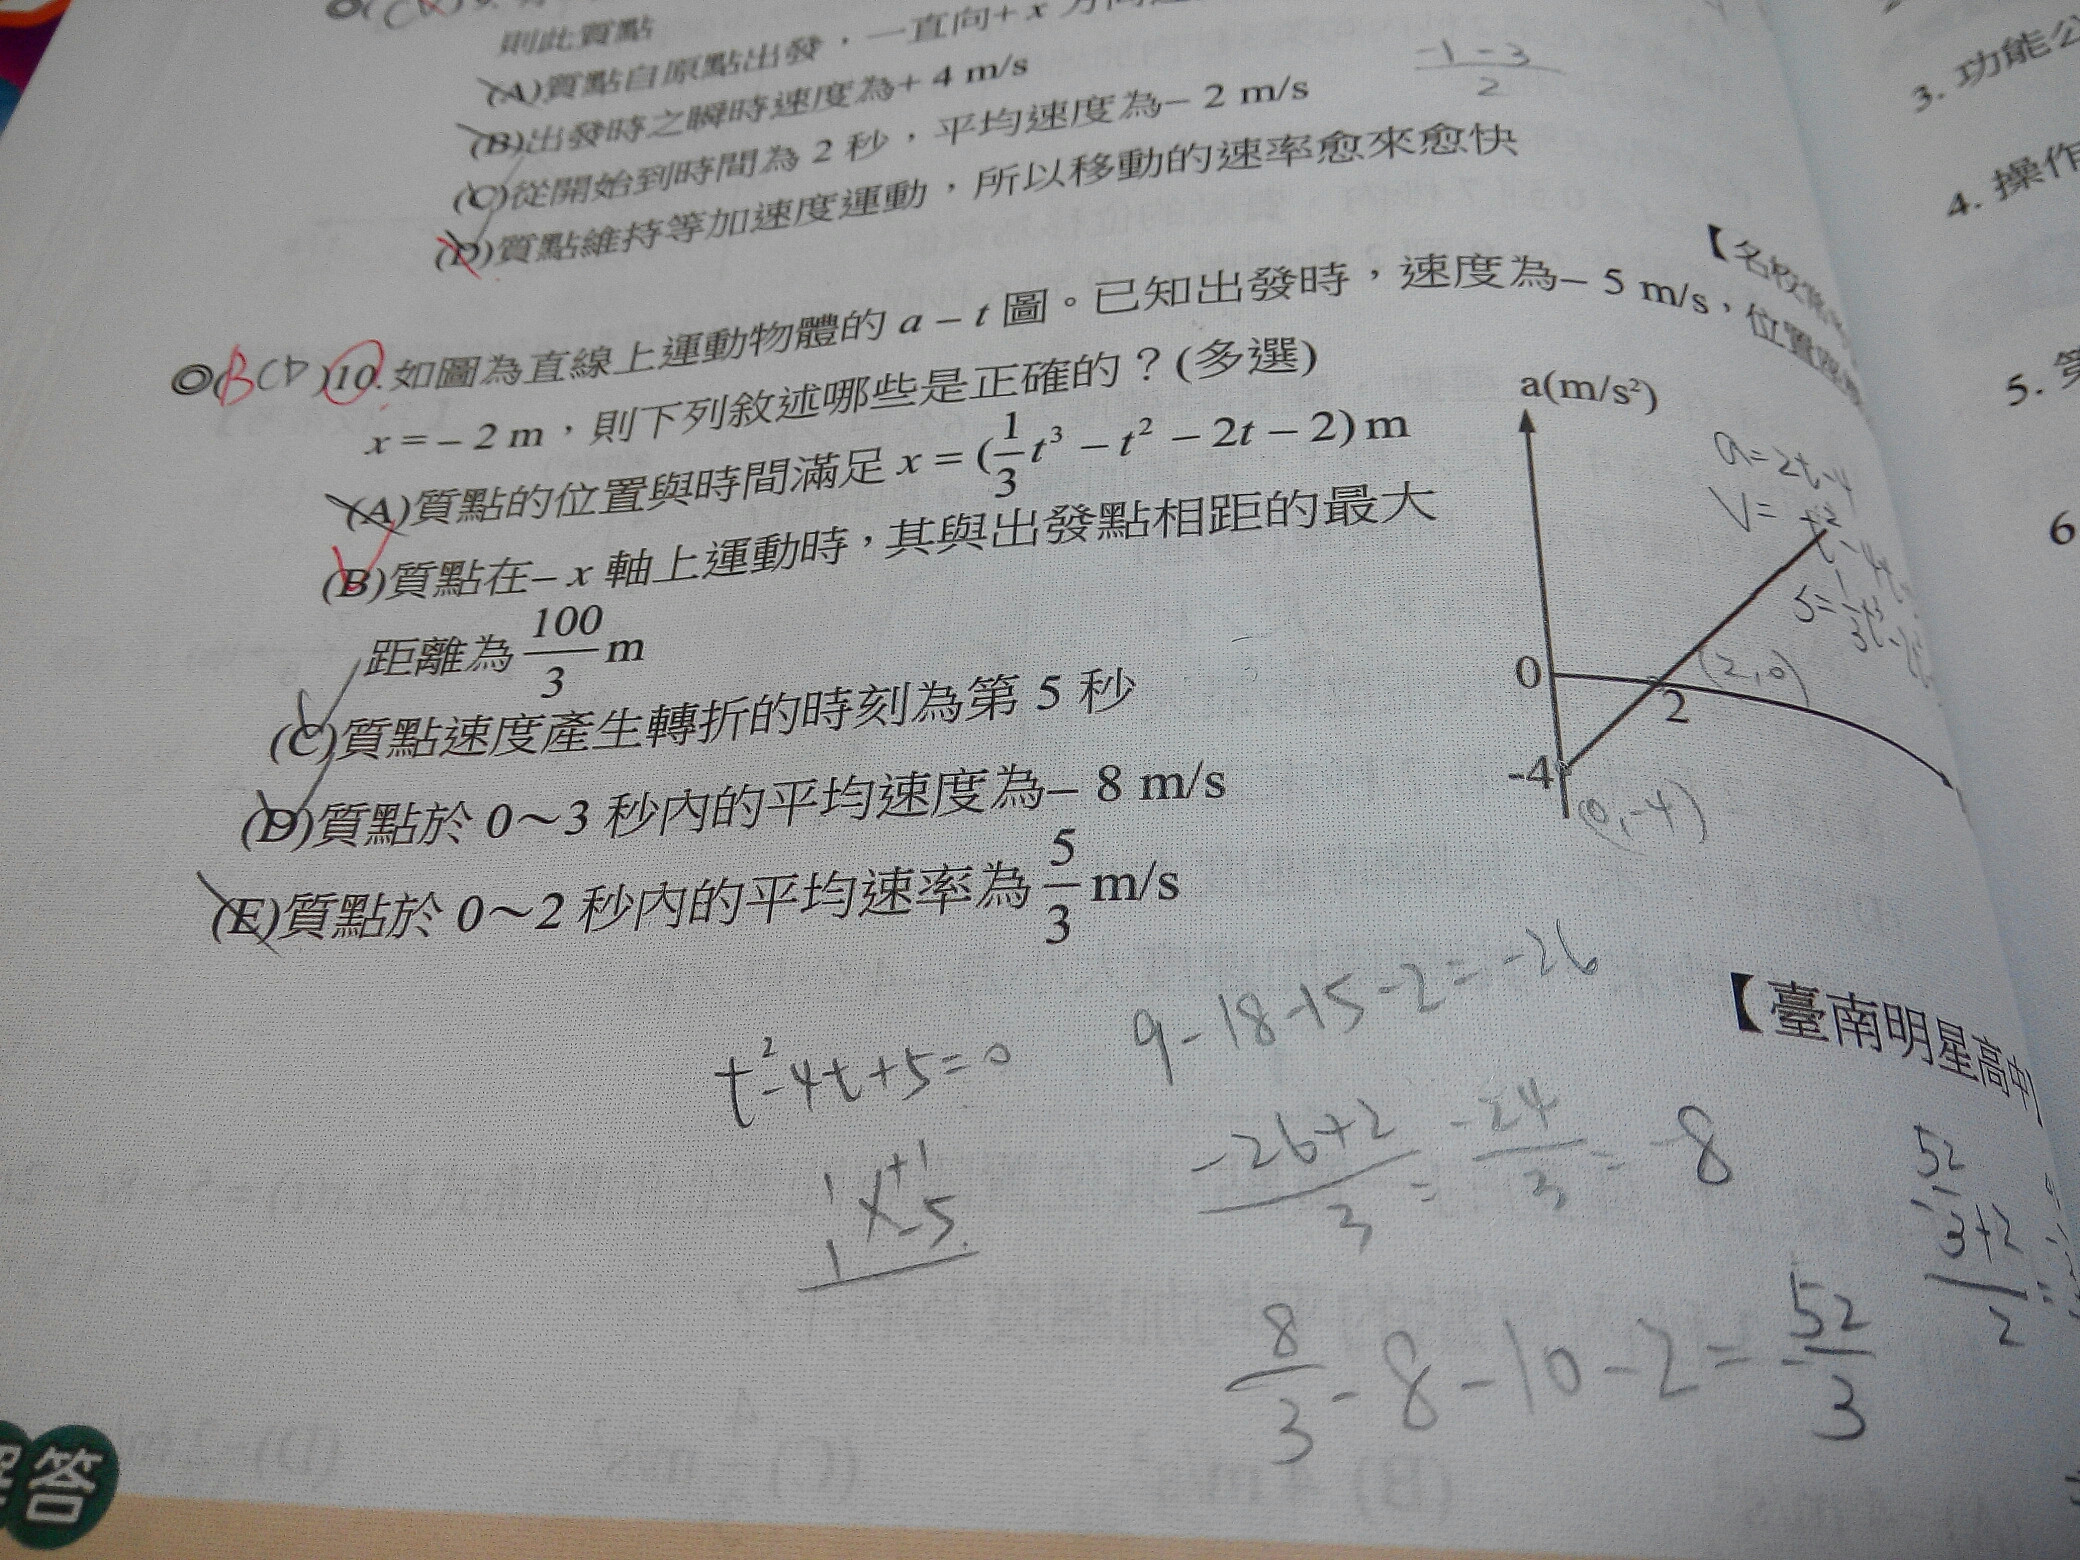 則此質點
(A)質點自原點出發，一直向+ x 方向
(B)出發時之瞬時速度為+ 4 m/s
(C)從開始到時間為 2 秒，平均速度為– 2 m/s
(D)質點維持等加速度運動，所以移動的速率愈來愈快
-1-3
2
【名校
◎(BCD)10.如圖為直線上運動物體的 a – t 圖。已知出發時，速度為– 5 m/s，位置
x = – 2 m，則下列敘述哪些是正確的？(多選)
(A)質點的位置與時間滿足 x = (1/3 t³ – t² – 2t – 2) m
(B)質點在– x 軸上運動時，其與出發點相距的最大
距離為 100/3 m
(C)質點速度產生轉折的時刻為第 5 秒
(D)質點於 0～3 秒內的平均速度為– 8 m/s
(E)質點於 0～2 秒內的平均速率為 5/3 m/s
a(m/s²)
a=2t-4
V= t²-4t
0
2
(2,0)
-4
(0,-4)
【臺南明星高中
t²-4t+5=0
1 +1
1 -5
9-18-15-2=-26
-26+2/3 = -24/3 = -8
8/3 -8-10-2= -52/3
3. 功能公
4. 操作
5. 第
6
解答